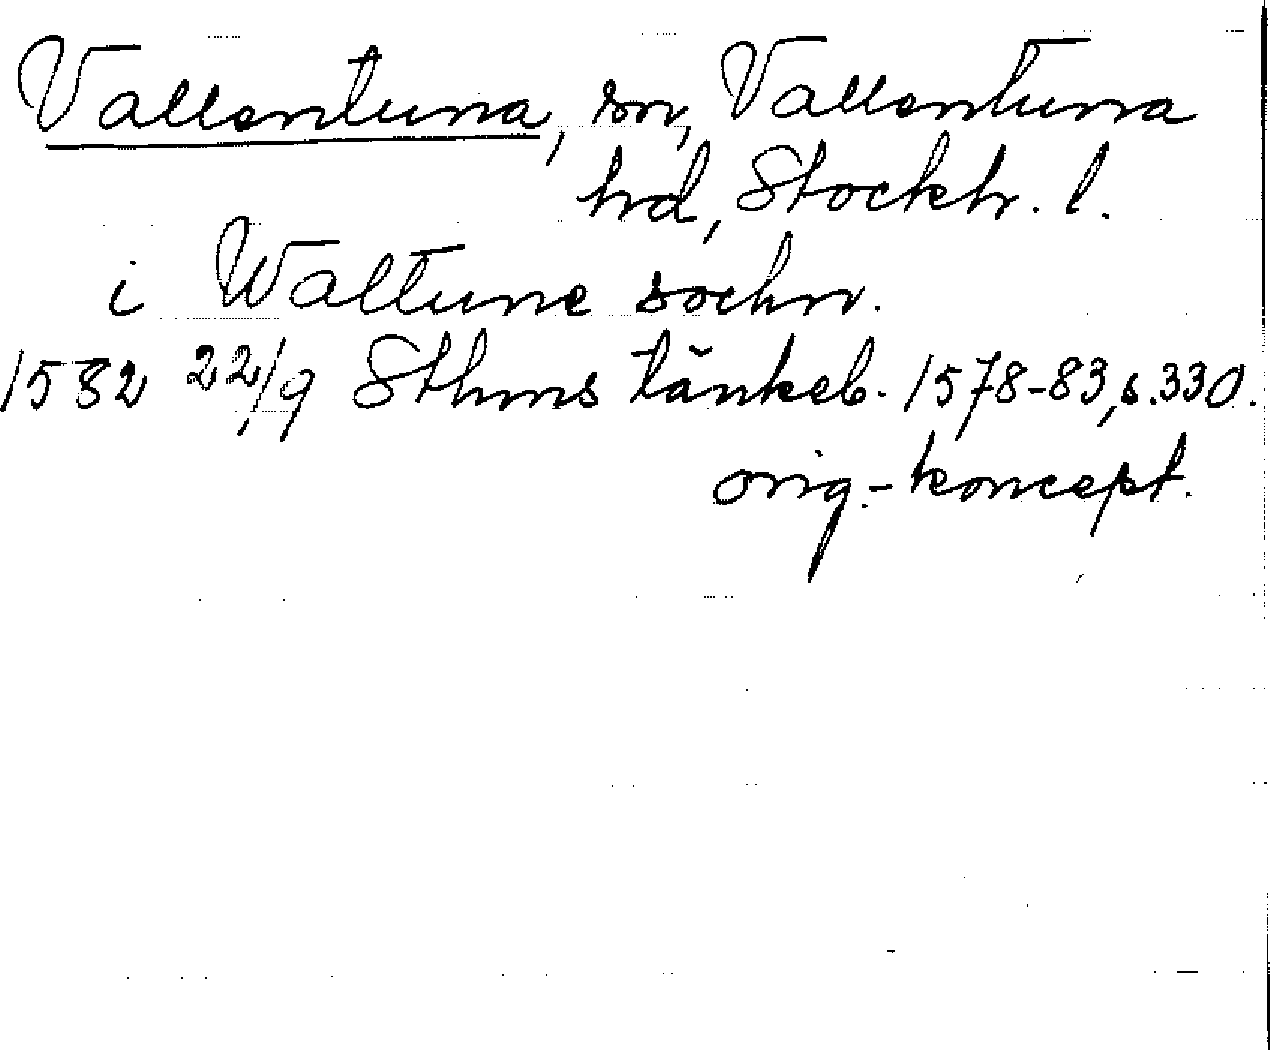 Vallentuna, sn, Vallentuna
hd, Stockh. l.
i Waltune sochn.
1582 22/9 Sthms tänkeb. 1578-83, s. 330.
orig.-koncept.